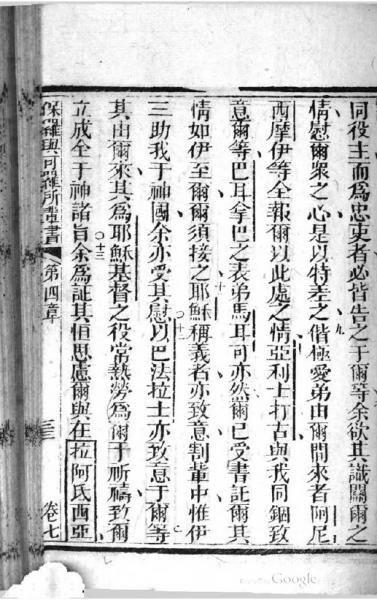 同役主而為忠吏者必皆告之于爾等余欲其識關爾之
情慰爾衆之心是以特差之偕極愛弟由爾間來者阿尼
九
西摩伊等全報爾以此處之情亞利士打古與我同錮致
意爾等巴耳拿巴之表弟馬耳可亦然爾已受書証爾其
十
情如伊至爾爾須接之耶穌稱義者亦致意割輩中惟伊
十一
三助我于神國余亦受其慰以巴法拉士亦致意于爾等
其由爾來其為耶穌基督之役常熱勞為爾于祈禱致爾
十三
立成全于神諸旨余為証其恒思慮爾與在拉阿氐西亞
保羅與可羅所書 第四章 卷七
Google